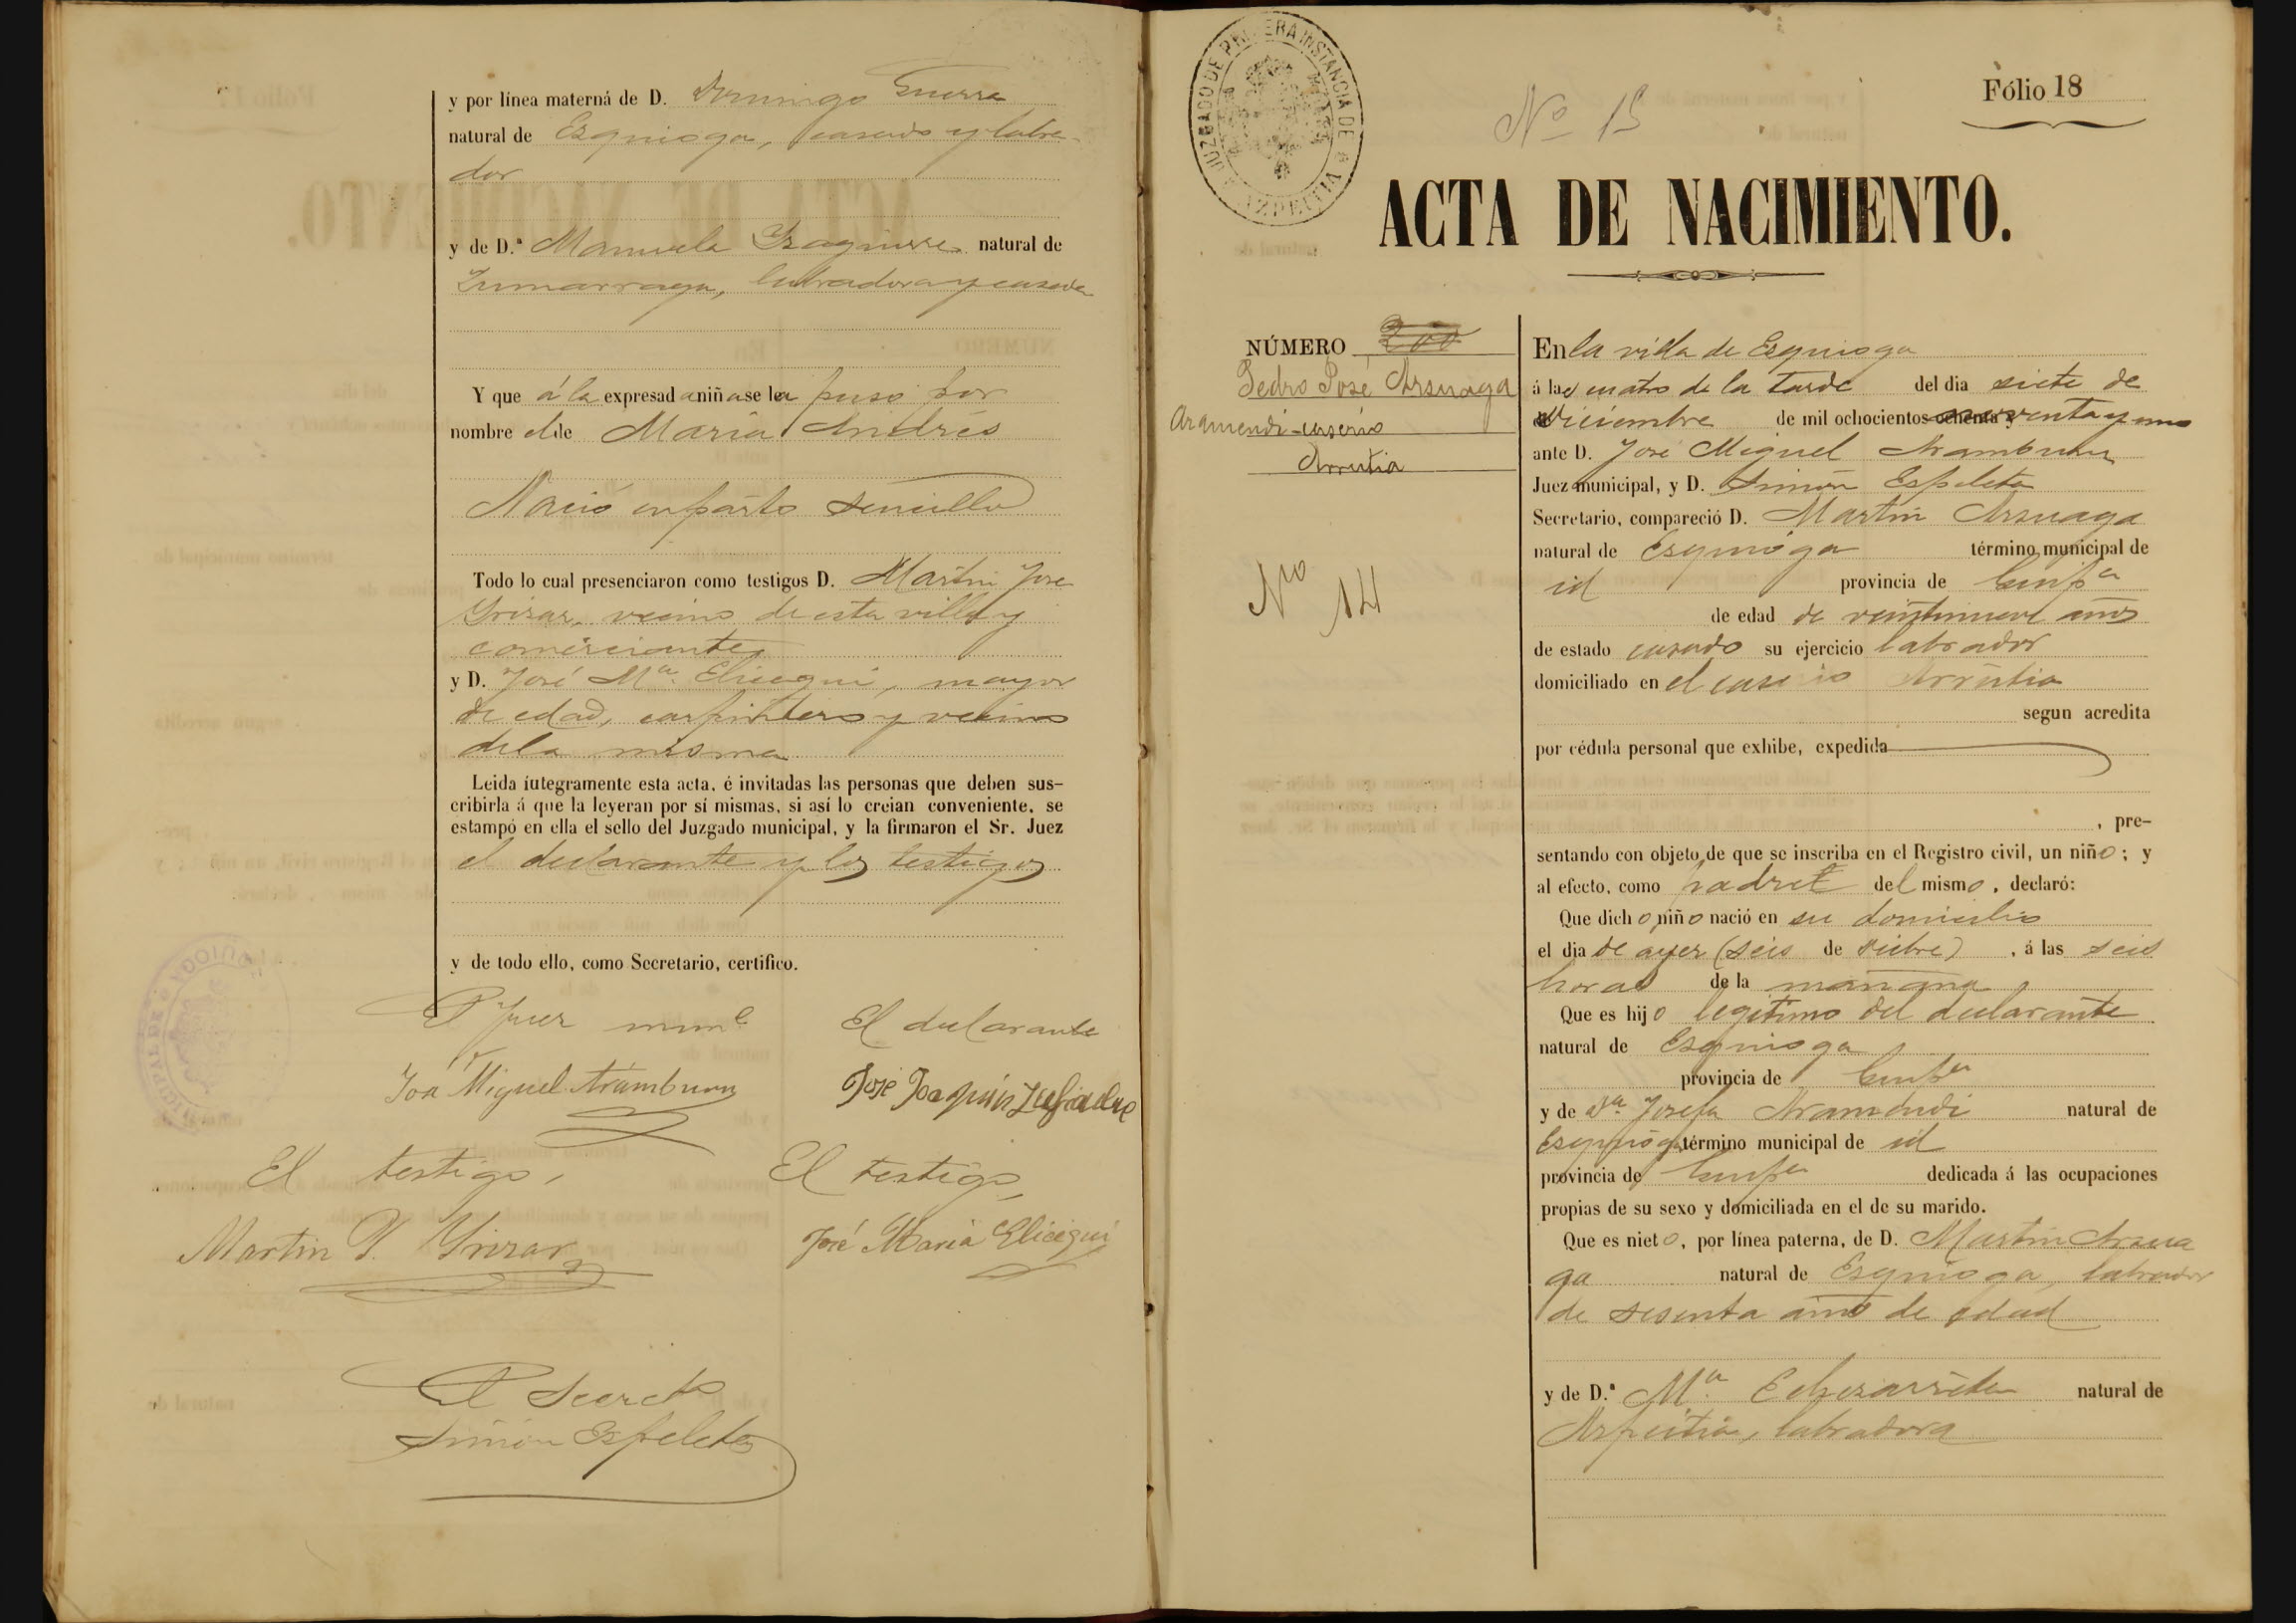 y por línea materna de D. Domingo Guerra
natural de Esquioga, casado y labra-
dor
y de D.ª Manuela Yzaguirre natural de
Zumarraga, labradora y casada
Y que á la expresada niña se la puso por
nombre el de María Andrés
Nació en parto sencillo
Todo lo cual presenciaron como testigos D. Martin José
Yrizar, vecino de esta villa y
comerciante
y D. José Mª. Elicegui, mayor
de edad, carpintero y vecino
de la misma
Leida íutegramente esta acta, é invitadas las personas que deben sus-
cribirla á que la leyeran por sí mismas, si así lo creian conveniente, se
estampó en ella el sello del Juzgado municipal, y la firmaron el Sr. Juez
el declarante y los testigos
y de todo ello, como Secretario, certifico.
El Juez munl El declarante
José Miguel Aramburu José Joaquin
El testigo, El testigo,
Martin J. Yrizar José Maria Elicegui
El Secreto
Simón Espeleta
JUZGADO DE PRIMERA INSTANCIA DE AZPEITIA
Nº 15
Fólio 18
ACTA DE NACIMIENTO.
NÚMERO 200
Pedro José Arsuaga
Aramendi-caserio
Arrutia
Nro 14
En la villa de Esquioga
á las cuatro de la tarde del dia siete de
Diciembre de mil ochocientos ochenta y noventa y uno
ante D. José Miguel Aramburu
Juez municipal, y D. Simón Espeleta
Secretario, compareció D. Martin Arsuaga
natural de Esquioga término municipal de
id provincia de Guipª
de edad de veintinueve años
de estado casado su ejercicio labrador
domiciliado en el caserio Arrutia
segun acredita
por cédula personal que exhibe, expedida
, pre-
sentando con objeto de que se inscriba en el Registro civil, un niño; y
al efecto, como padre del mismo, declaró:
Que dicho niño nació en su domicilio
el dia de ayer (seis de Dicbre) , á las seis
horas de la mañana
Que es hijo legitimo del declarante
natural de Esquioga
provincia de Guipª
y de Dª. Josefa Aramendi natural de
Esquioga término municipal de id
provincia de Guipª dedicada á las ocupaciones
propias de su sexo y domiciliada en el de su marido.
Que es nieto, por línea paterna, de D. Martin Arsua
ga natural de Esquioga, labrador
de sesenta años de edad
y de D.ª Mª. Echezarreta natural de
Azpeitia, labradora